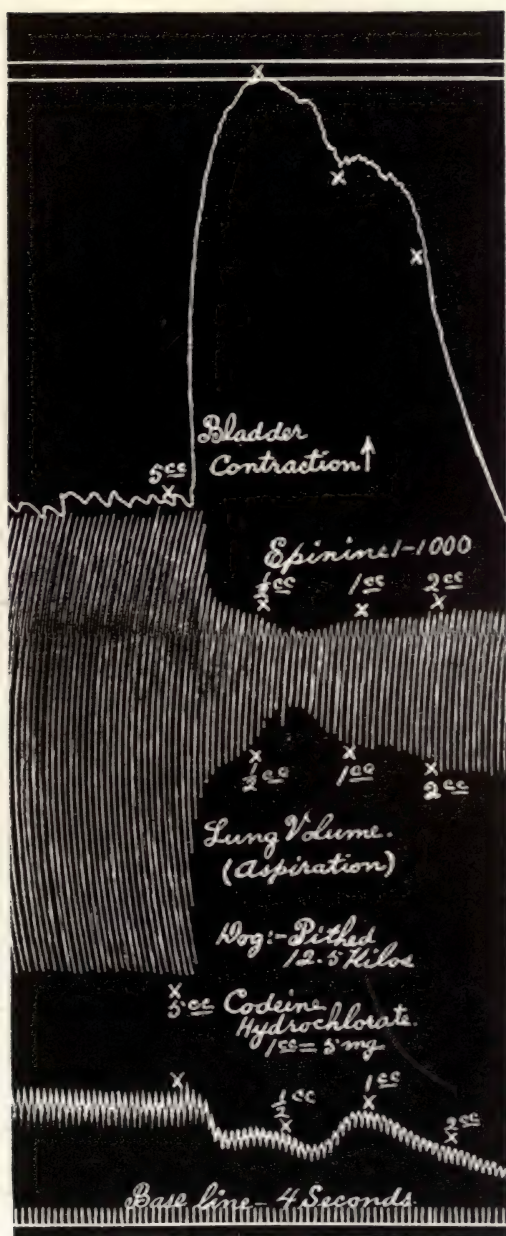 x
x
x
Bladder
5cc Contraction ↑
x
Epinine 1-1000
1/2cc 1cc 2cc
x x x
x x x
1/2cc 1cc 2cc
Lung Volume.
(Aspiration)
Dog:- Pithed
12.5 Kilos
x
5cc Codeine
Hydrochlorate.
1cc = 5 mg
x 1/2cc 1cc 2cc
x x x
Base line - 4 Seconds.